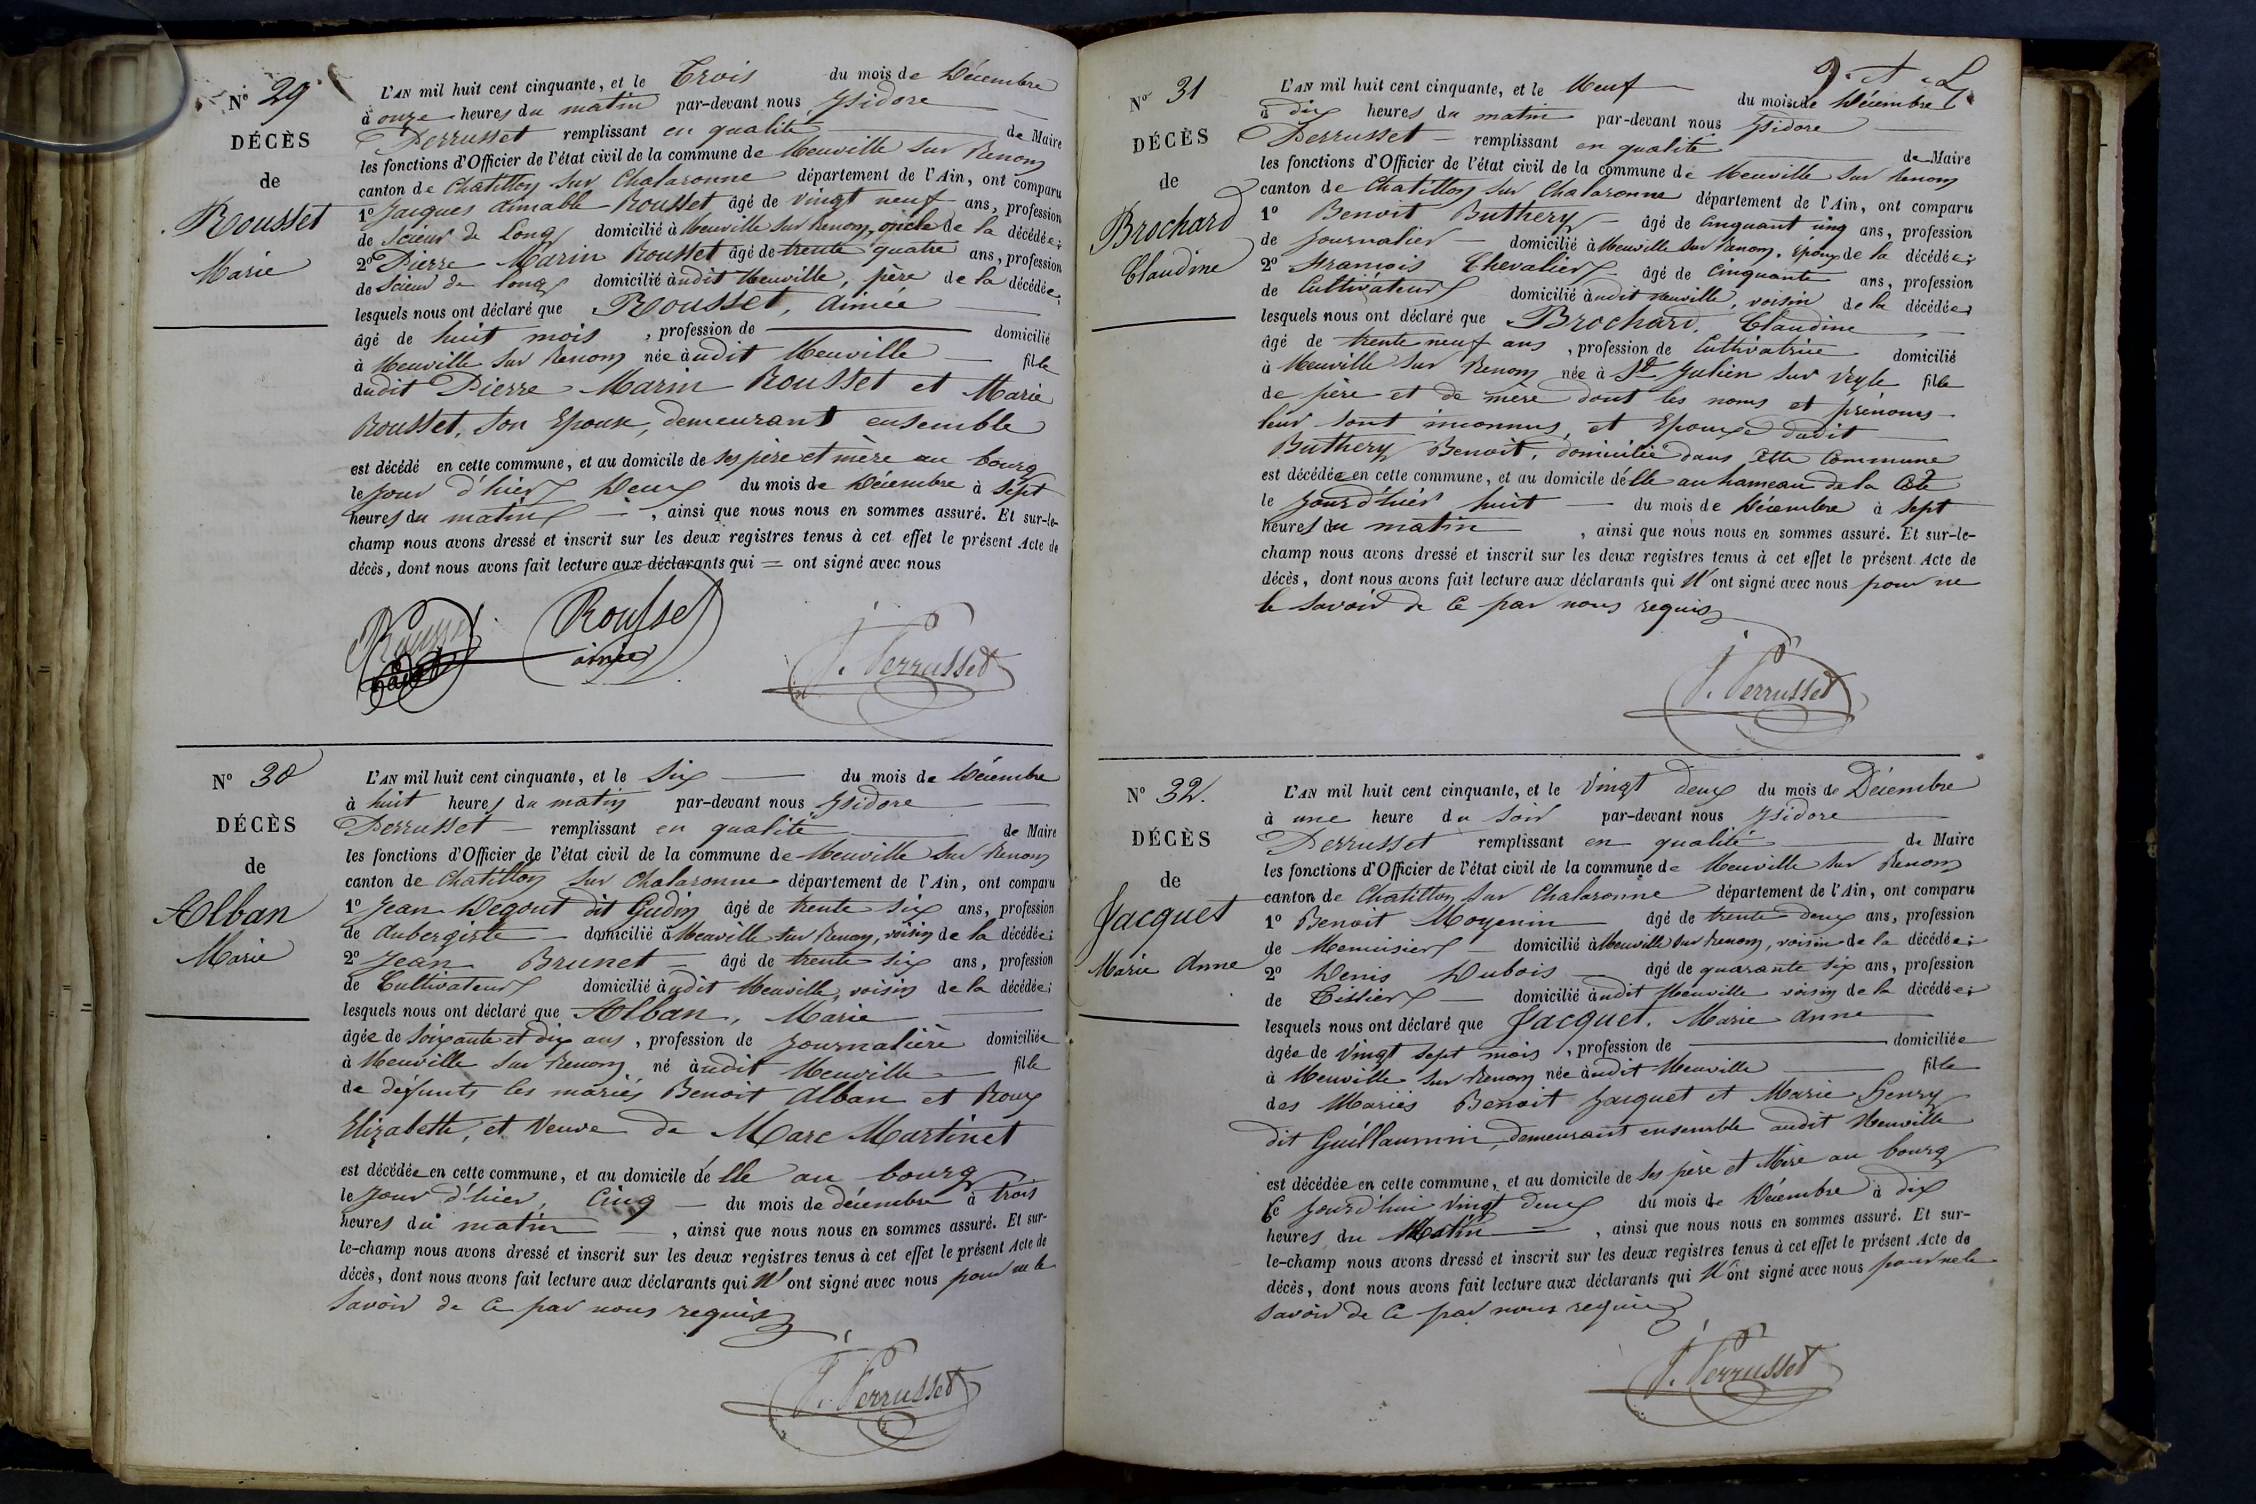 N° 29
DÉCÈS
de
Rousset
Marie
L'AN mil huit cent cinquante, et le Trois du mois de Décembre
à onze heures du matin par-devant nous Ysidore
Perrusset remplissant en qualité de Maire
les fonctions d'Officier de l'état civil de la commune de Neuville sur Renom
canton de Chatillon sur Chalaronne département de l'Ain, ont comparu
1° Jacques aimable Rousset âgé de vingt neuf ans, profession
de scieur de Long domicilié à Neuville sur Renom, oncle de la décédée;
2° Pierre Marin Rousset âgé de trente quatre ans, profession
de scieur de long domicilié audit Neuville, père de la décédée;
lesquels nous ont déclaré que Rousset, aimée
âgé de huit mois, profession de domicilié
à Neuville sur Renom née audit Neuville fille
dudit Pierre Marin Rousset et Marie
Rousset, son Epouse, demeurant ensemble
est décédé en cette commune, et au domicile de ses père et mère au bourg
le jour d'hier Deux du mois de Décembre à sept
heures du matin, ainsi que nous nous en sommes assuré. Et sur-le-
champ nous avons dressé et inscrit sur les deux registres tenus à cet effet le présent Acte de
décès, dont nous avons fait lecture aux déclarants qui = ont signé avec nous
Rousset
ainée
J. Perrusset
N° 30
DÉCÈS
de
Alban
Marie
L'AN mil huit cent cinquante, et le Six du mois de Décembre
à huit heures du matin par-devant nous Ysidore
Perrusset remplissant en qualité de Maire
les fonctions d'Officier de l'état civil de la commune de Neuville sur Renom
canton de Chatillon sur Chalaronne département de l'Ain, ont comparu
1° Jean Degout dit Gudin âgé de trente six ans, profession
de aubergiste domicilié à Neuville sur Renom, voisin de la décédée;
2° Jean Brunet âgé de trente six ans, profession
de Cultivateur domicilié audit Neuville, voisin de la décédée;
lesquels nous ont déclaré que Alban, Marie
âgée de soixante et dix ans, profession de journalière domiciliée
à Neuville sur Renom né audit Neuville fille
de défunts les mariés Benoit Alban et Roux
Elizabeth, et Veuve de Marc Martinet
est décédée en cette commune, et au domicile d'elle au bourg
le jour d'hier, Cinq du mois de décembre à trois
heures du matin, ainsi que nous nous en sommes assuré. Et sur-
le-champ nous avons dressé et inscrit sur les deux registres tenus à cet effet le présent Acte de
décès, dont nous avons fait lecture aux déclarants qui N'ont signé avec nous pour ne le
savoir de ce par nous requis
J. Perrusset
N° 31
DÉCÈS
de
Brochard
Claudine
L'AN mil huit cent cinquante, et le Neuf du mois de Décembre
à dix heures du matin par-devant nous Ysidore
Perrusset remplissant en qualité de Maire
les fonctions d'Officier de l'état civil de la commune de Neuville sur Renom
canton de Chatillon sur Chalaronne département de l'Ain, ont comparu
1° Benoit Buthery âgé de Cinquant unq ans, profession
de Journalier domicilié à Neuville sur Renom, époux de la décédée;
2° François Chevalier âgé de Cinquante ans, profession
de Cultivateur domicilié audit Neuville, voisin de la décédée;
lesquels nous ont déclaré que Brochard, Claudine
âgé de trente neuf ans, profession de Cultivatrice domicilié
à Neuville sur Renom née à St Julien sur Veyle fille
de père et de mère dont les noms et prénoms
leur sont inconnus, et Epouse dudit
Buthery Benoit, domiciliée dans cette Commune
est décédée en cette commune, et au domicile d'elle au hameau de la Côte
le jourd'hiér huit du mois de Décembre à sept
heures du matin, ainsi que nous nous en sommes assuré. Et sur-le-
champ nous avons dressé et inscrit sur les deux registres tenus à cet effet le présent Acte de
décès, dont nous avons fait lecture aux déclarants qui N'ont signé avec nous pour ne
le savoir de ce par nous requis
J. Perrusset
N° 32.
DÉCÈS
de
Jacquet
Marie Anne
L'AN mil huit cent cinquante, et le Vingt deux du mois de Décembre
à une heure du soir par-devant nous Ysidore
Perrusset remplissant en qualité de Maire
les fonctions d'Officier de l'état civil de la commune de Neuville sur Renom
canton de Chatillon sur Chalaronne département de l'Ain, ont comparu
1° Benoit Moyenin âgé de trente deux ans, profession
de Menuisier domicilié à Neuville sur Renom, voisin de la décédée;
2° Denis Dubois âgé de quarante six ans, profession
de Tissier domicilié audit Neuville voisin de la décédée;
lesquels nous ont déclaré que Jacquet, Marie Anne
âgée de Vingt sept mois, profession de domiciliée
à Neuville sur Renom née audit Neuville fille
des Mariés Benoit Jacquet et Marie Henry
dit Guillaumin, demeurant ensemble audit Neuville
est décédée en cette commune, et au domicile de ses père et Mère au bourg
Ce jourd'hui vingt deux du mois de Décembre à dix
heures du Matin, ainsi que nous nous en sommes assuré. Et sur-
le-champ nous avons dressé et inscrit sur les deux registres tenus à cet effet le présent Acte de
décès, dont nous avons fait lecture aux déclarants qui N'ont signé avec nous pour ne le
savoir de ce par nous requis
J. Perrusset